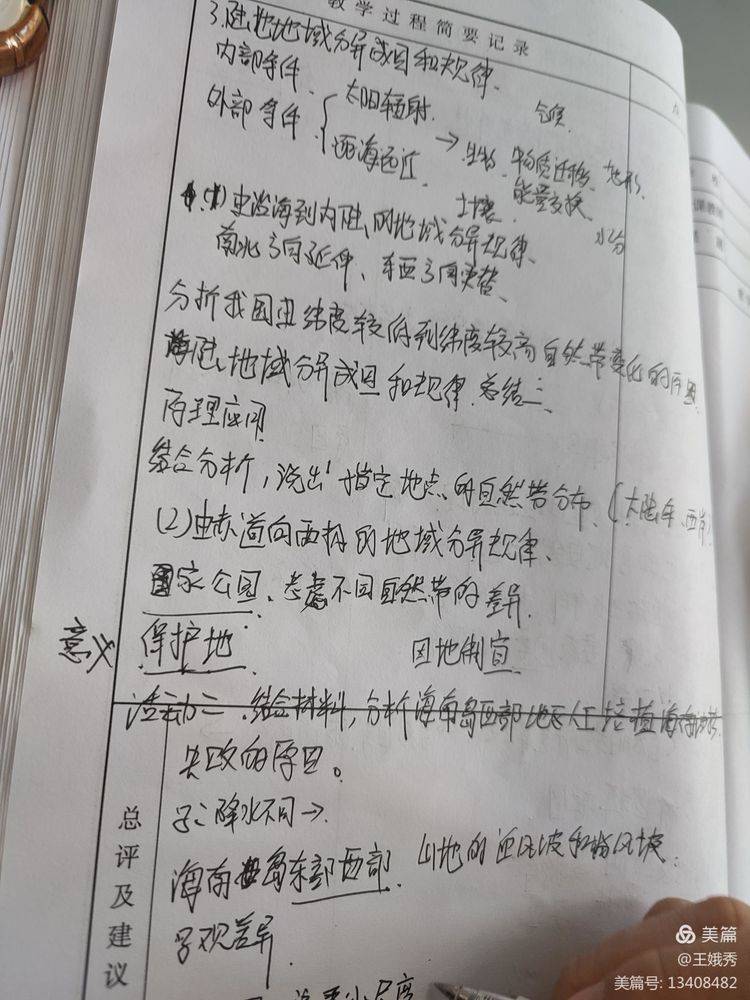 教学过程简要记录
3.陆地地域分异成因和规律.
内部条件.
外部条件 太阳辐射. 气候.
距海远近. → 生物. 物质迁移. 地形.
土壤 能量交换 水分
(1) 由沿海到内陆的地域分异规律.
南北方向延伸、东西方向更替.
分析我国由纬度较低到纬度较高自然带变化的原因.
陆地地域分异成因和规律.总结二.
原理应用
结合分析,说出指定地点的自然带分布.(大陆东、西岸)
(2)由赤道向两极的地域分异规律.
国家公园. 考虑不同自然带的差异.
意义 保护地 因地制宜
活动二.结合材料,分析海南岛西部 人工培植
失败的原因.
子:降水不同→.
海南岛东部西部. 山地的迎风坡和背风坡.
景观差异.
小尺度
总评及建议
美篇
@王娥秀
美篇号: 13408482